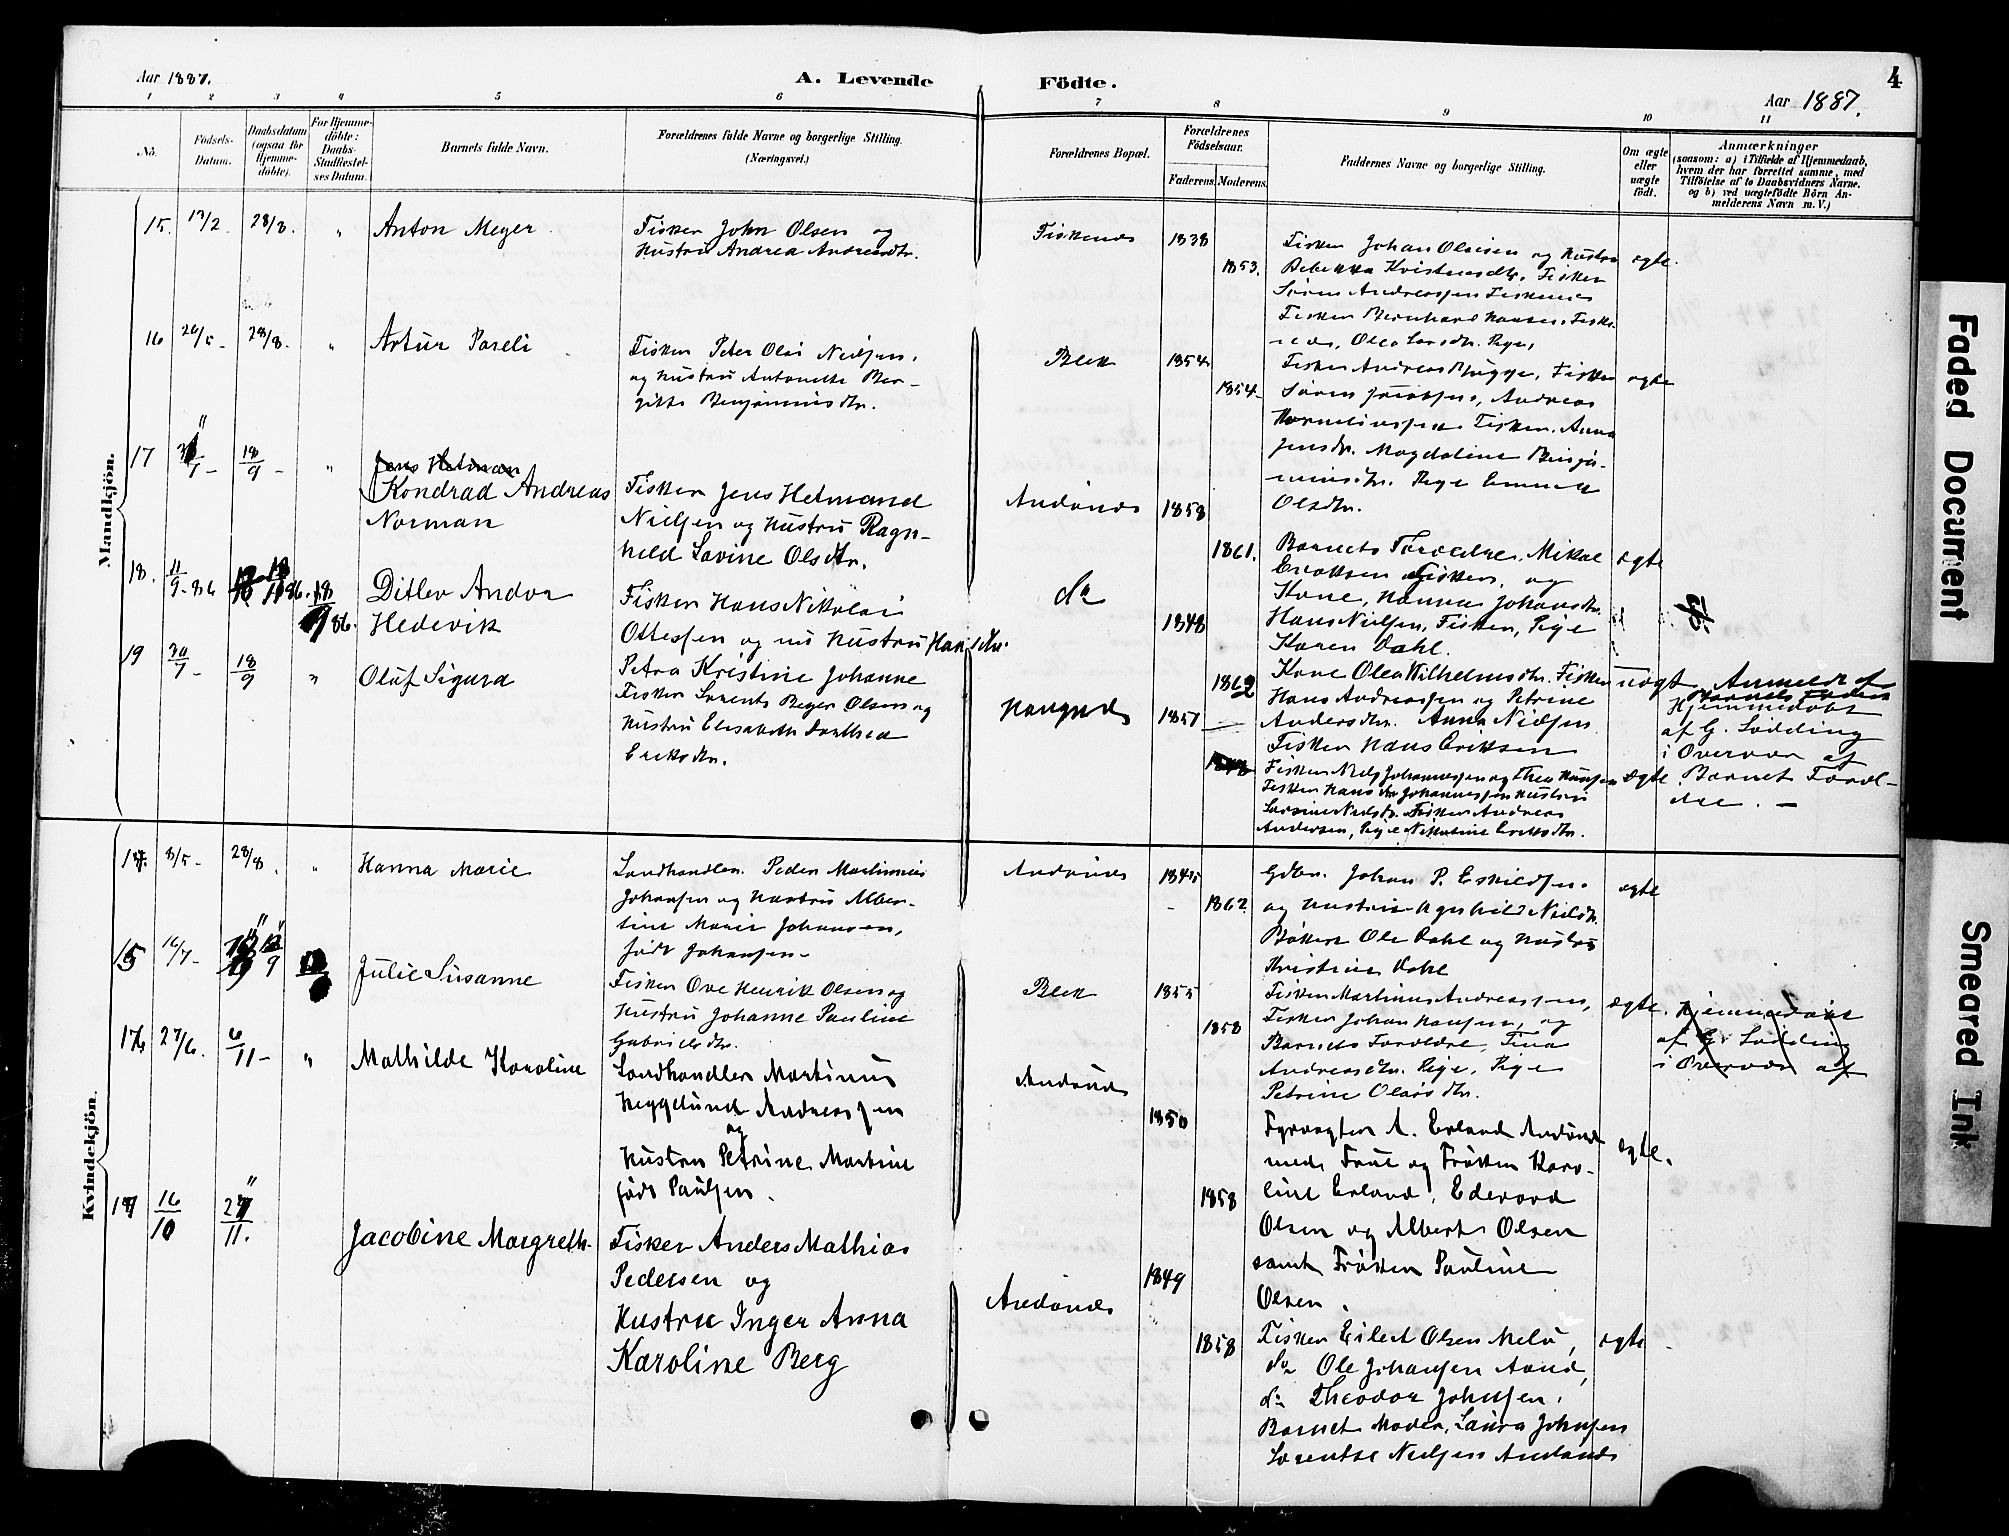 Aar 1887.
A. Levende
Födte.
4
Aar 1887.
1 2 3 4 5 6 7 8 9 10 11
No.
Födsels-
Datum.
Daabsdatum
(ogsaa for
Hjemme-
döbte).
For Hjemme-
döbte:
Daabs-
Stadfæstel-
ses Datum.
Barnets fulde Navn.
Forældrenes fulde Navne og borgerlige Stilling.
(Næringsvei.)
Forældrenes Bopæl.
Forældrenes
Födselsaar.
Faderens.
Moderens.
Faddernes Navne og borgerlige Stilling.
Om ægte
eller
uægte
födt.
Anmærkninger
(saasom: a) i Tilfælde af Hjemmedaab,
hvem der har forrettet samme, med
Tilföielse af to Daabsvidners Navne.
og b) ved uægtefödte Börn An-
melderens Navn m. V.)
Mandkjön.
15. 28/8. " Anton Meyer
Fisker John Olsen og
Hustru Andrea Andreasdtr.
Fiskenes 1838
1853.
Fisker Johan Olsen og Hustru
Rebekka Kristensdtr. Fisker
Søren Andreassen Fiskenes
Fisker Bernhard Hansen, Fiske-
nes, Olea Larsdtr. Pige,
ægte.
16 28/8. " Artur Pareli
Fisker Peter Olai Nielsen,
og Hustru Antonette Ber-
gitte Benjaminsdtr.
Bleik 1854
1854
Fisker Andreas Brygge, Fisker
Søren Jacobsen, Andreas
Korneliussen Fisker. Anna
Jensdtr. Magdaline Benja-
minsdtr. Pige
Olsdtr.
ægte
17 18/9 " Jens Hetman
Kondrad Andreas
Norman
Fisker Jens Hetmand
Nielsen og Hustru Ragn-
hild Lovine Olsdtr.
Andönes 1858
1861.
Barnets Forældre, Mikal
Eriksen Fisker, og
Kone, Hanna Johansdtr.
Hans Nielsen, Fisker, Pige
Karen Dahl.
ægte
18. 11/9-86 18/9 86. Ditlev Andor
Hedevik
Fisker Hans Nikolai
Ottessen og nu Hustru Hansdtr.
Petra Kristine Johanne
do 1848
1862
Kone Olea Wilhelmsdtr. Fisker
Hans Andreassen og Petrine
Andersdtr. Anna Nielsen
Fisker Hans Eriksen
uægt
Anmeldt af
Barnets Fader
Hjemmedøbt
af G. Lødding
i Overvær af
Barnet Foræl-
dre. —
19 30/7 18/9 " Oluf Sigurd
Fisker Lorents Beyer Olsen og
Hustru Elisabeth Dorthea
Eriksdtr.
Haugnes 1857
Fisker Niels Johannessen og Thea Hansen
Fisker Hans Johannessen Hustru
Larsine Nielsdtr. Fisker Andreas
Andersen, Pige Nikoline Eriksdtr.
ægte
Kvindekjön.
8/5 28/8. " Hanna Marie
Landhandler. Peder Martinius
Johansen og Hustru Alber-
tine Marie Johansen,
født Johansen.
Andönes 1845
1862
Gdbr. Johan P. Eskildsen.
og Hustru Agnhild Nielsdtr.
Bøkker Ole Dahl og Hustru
Kristine Dahl
ægte
15 16/7 Julie Susanne
Fisker Ove Henrik Olsen og
Hustru Johanne Pauline
Gabrielsdtr.
Bleik 1855
1858
Fisker Martinus Andreassen,
Fisker Johan Hansen, og
Barnets Forældre, Tina
Andreasdtr. Pige, Pige
Petrine Olaisdtr.
ægte.
Hjemmedøbt
af G. Lødding
i Overvær af
16 27/6. 6/11 " Mathilde Karoline
Landhandler Martinus
Heggelund Andreassen
og
Hustru Petrine Martine
født Paulsen.
Andönes
1850
1858
Fyrvogter A. Erland Andönes
med Frue og Frøken Karo-
line Erland, Edevard
Olsen og Albert Olsen
samt Frøken Pauline
Olsen.
ægte.
17 16/10 27/11. Jacobine Margreth
Fisker Anders Mathias
Pedersen og
Hustru Inger Anna
Karoline Berg
Andönes 1849
1858
Fisker Eilert Olsen Melø,
do Ole Johansen Aand,
do Theodor Johnsen.
Barnet Moder, Laura Johnsen
Lorentse Nielsen Andönes
ægte
Faded Document
Smeared Ink